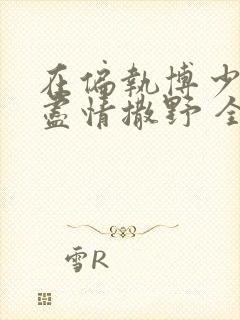 在偏執博少
盡情撒野 全
雪R